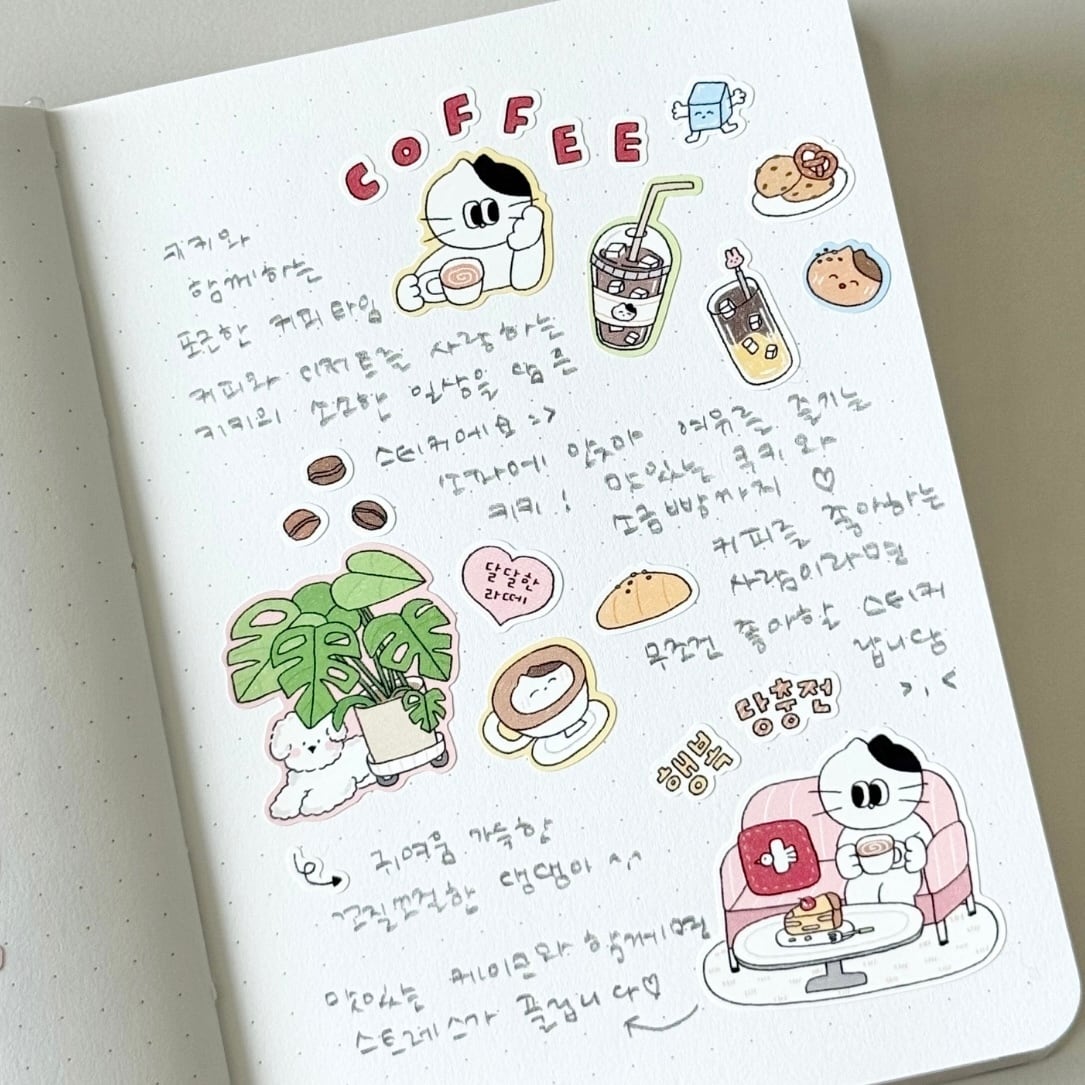 COFFEE
쿠키와
함께하는
포근한 커피타임
커피와 디저트를 사랑하는
키키의 소소한 일상을 담은
스티커에요 :>
소파에 앉아 여유를 즐기는
키키! 맛있는 쿠키와
소금빵까지 ♡
커피를 좋아하는
사람이라면
무조건 좋아할 스티커
랍니당
>.<
달달한
라떼
당충전
행복
귀여움 가득한
꼬질꼬질한 댕댕이 ^.^
맛있는 케이크와 함께면
스트레스가 풀립니다♡